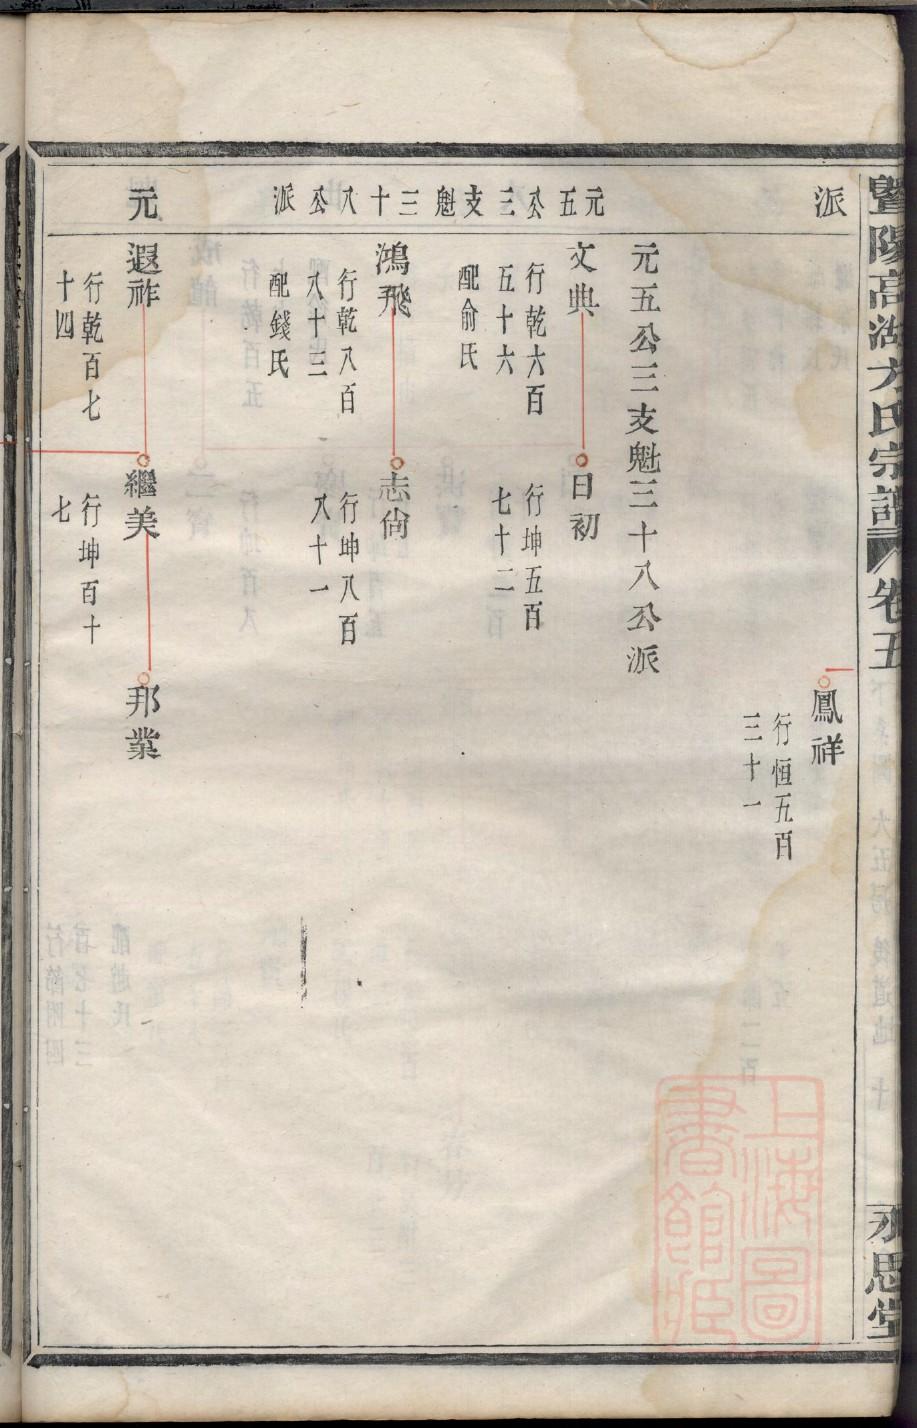 暨陽高湖方氏宗譜 卷五
永思堂
派
鳳祥
行恒五百
三十一
元五公三支魁三十八公派
元五公三支魁三十八公派
文典
行乾六百
五十六
配俞氏
日初
行坤五百
七十二
鴻飛
行乾八百
八十三
配錢氏
志尙
行坤八百
八十一
元
遐祚
行乾百七
十四
繼美
行坤百十
七
邦業
上海圖
書館